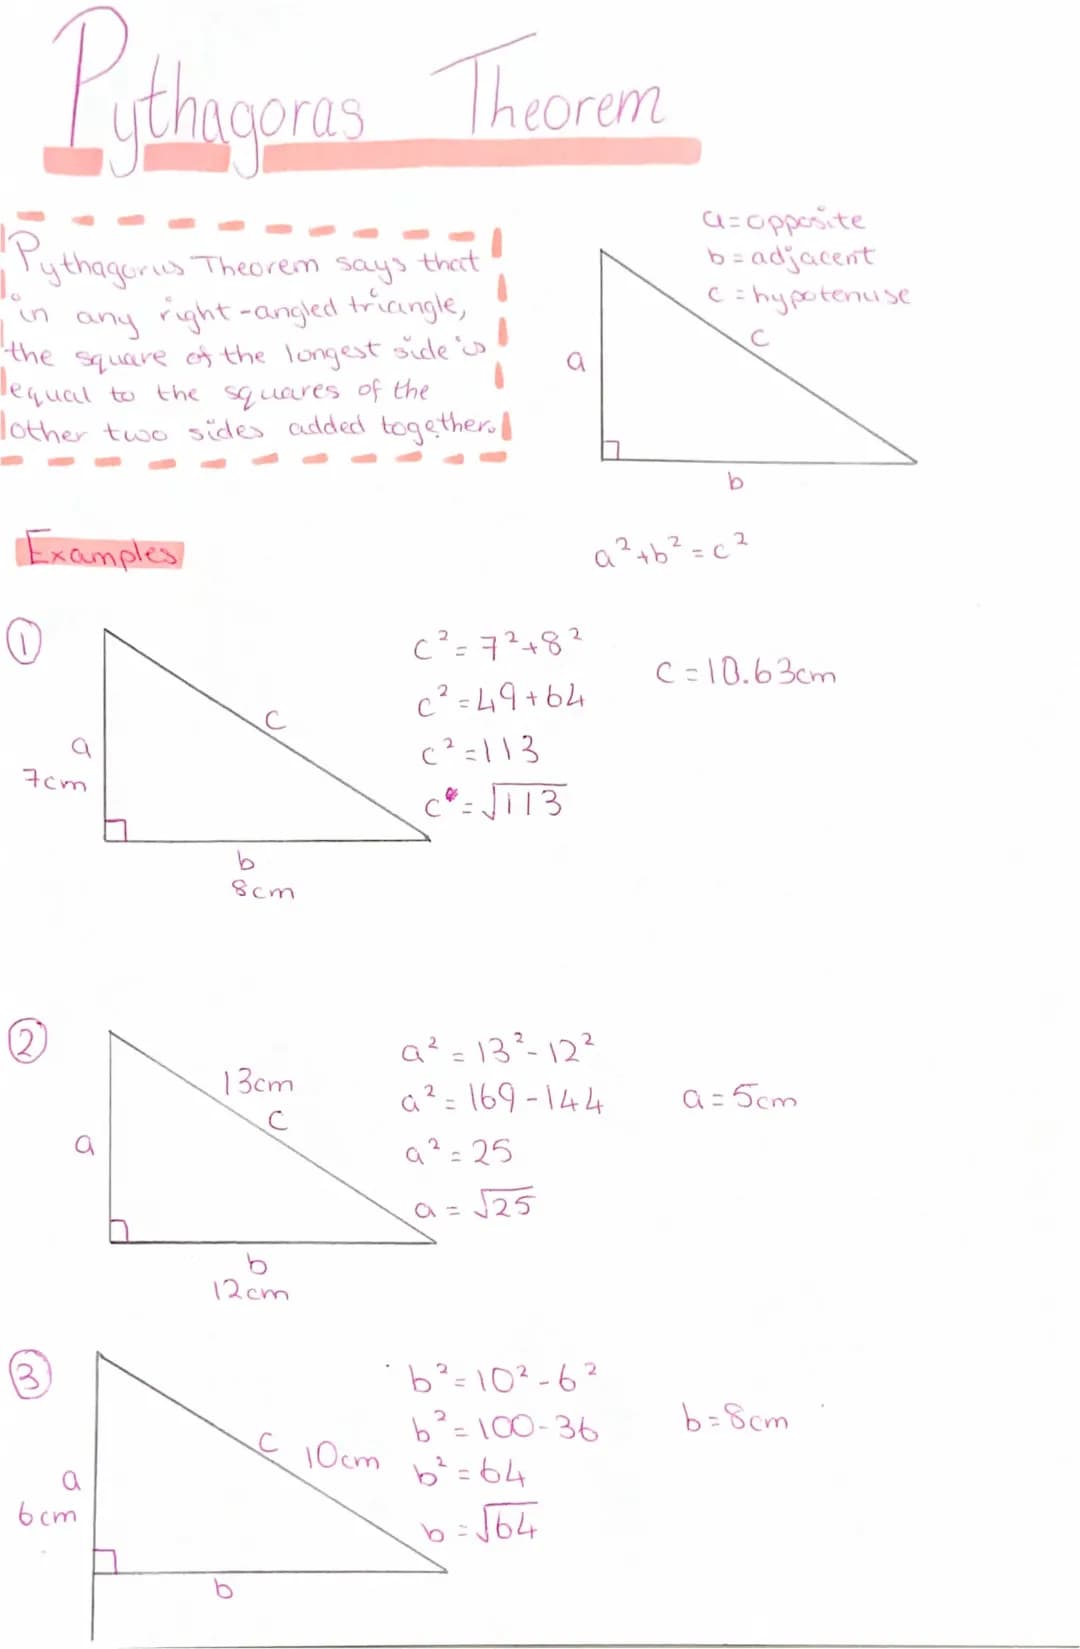 Pythagoras Theorem
Pythagorus Theorem says that
in any right-angled triangle,
the square of the longest side is
equal to the squares of the
other two sides added together.
a=opposite
b=adjacent
c=hypotenuse
c
a
b
a²+b²=c²
Examples
1
c²=7²+8²
c²=49+64
c²=113
c=√113
c=10.63cm
c
a
7cm
b
8cm
2
a²=13²-12²
a²=169-144
a²=25
a=√25
a=5cm
13cm
c
a
b
12cm
3
b²=10²-6²
b²=100-36
b²=64
b=√64
b=8cm
c
10cm
a
6cm
b